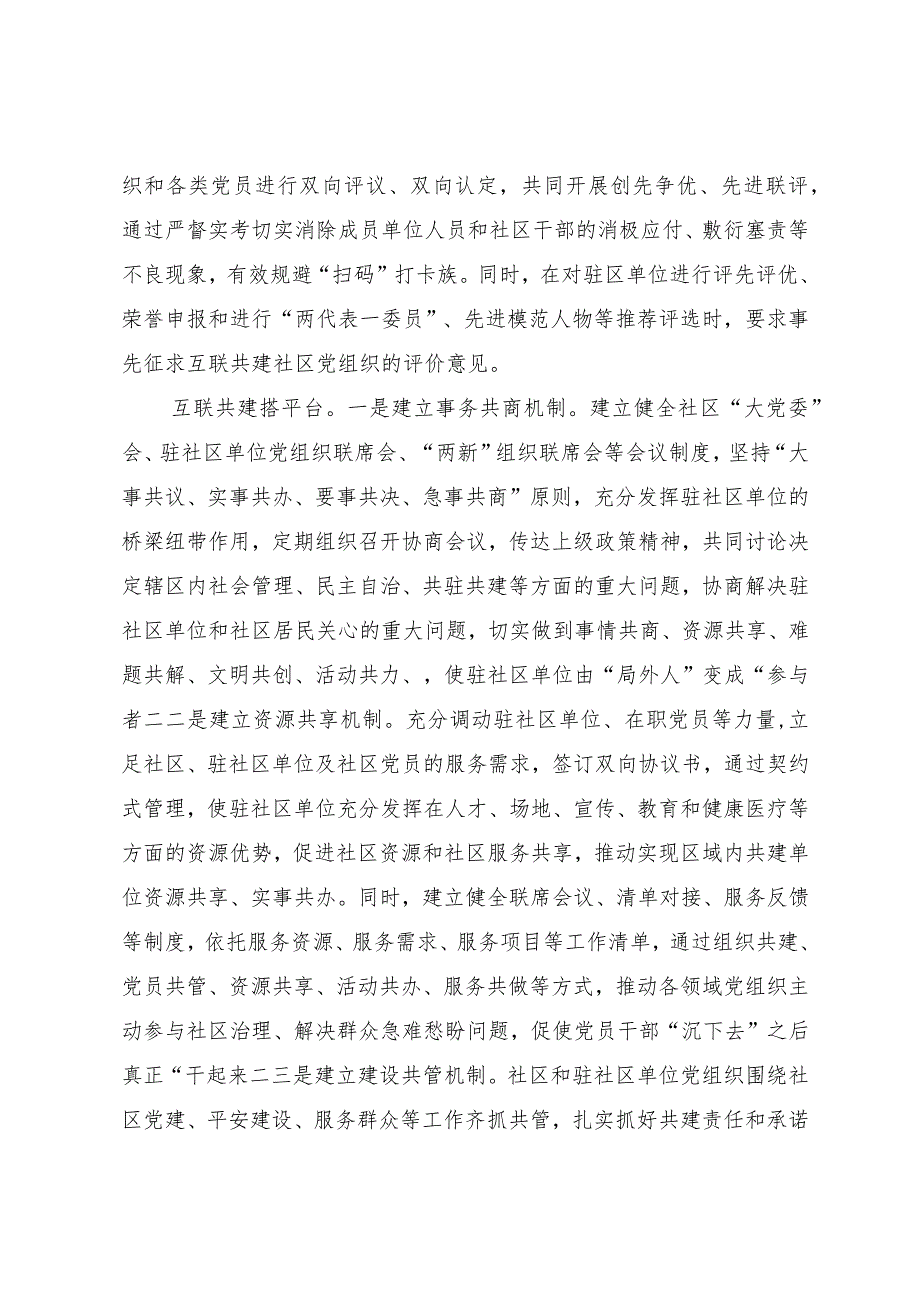 织和各类党员进行双向评议、双向认定，共同开展创先争优、先进联评，
通过严督实考切实消除成员单位人员和社区干部的消极应付、敷衍塞责等
不良现象，有效规避“扫码”打卡族。同时，在对驻区单位进行评先评优、
荣誉申报和进行“两代表一委员”、先进模范人物等推荐评选时，要求事
先征求互联共建社区党组织的评价意见。
互联共建搭平台。一是建立事务共商机制。建立健全社区“大党委”
会、驻社区单位党组织联席会、“两新”组织联席会等会议制度，坚持“大
事共议、实事共办、要事共决、急事共商”原则，充分发挥驻社区单位的
桥梁纽带作用，定期组织召开协商会议，传达上级政策精神，共同讨论决
定辖区内社会管理、民主自治、共驻共建等方面的重大问题，协商解决驻
社区单位和社区居民关心的重大问题，切实做到事情共商、资源共享、难
题共解、文明共创、活动共力、，使驻社区单位由“局外人”变成“参与
者二二是建立资源共享机制。充分调动驻社区单位、在职党员等力量,立
足社区、驻社区单位及社区党员的服务需求，签订双向协议书，通过契约
式管理，使驻社区单位充分发挥在人才、场地、宣传、教育和健康医疗等
方面的资源优势，促进社区资源和社区服务共享，推动实现区域内共建单
位资源共享、实事共办。同时，建立健全联席会议、清单对接、服务反馈
等制度，依托服务资源、服务需求、服务项目等工作清单，通过组织共建、
党员共管、资源共享、活动共办、服务共做等方式，推动各领域党组织主
动参与社区治理、解决群众急难愁盼问题，促使党员干部“沉下去”之后
真正“干起来二三是建立建设共管机制。社区和驻社区单位党组织围绕社
区党建、平安建设、服务群众等工作齐抓共管，扎实抓好共建责任和承诺